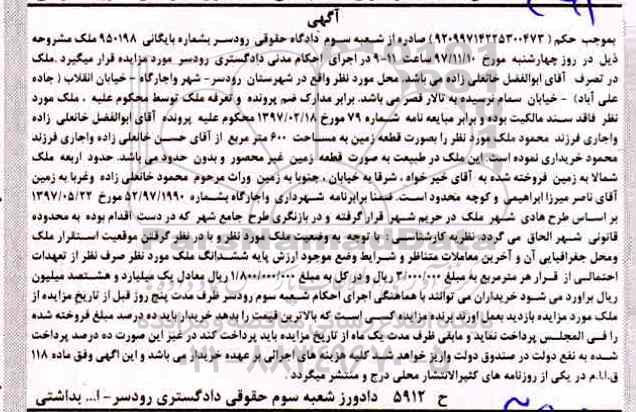 آگهی
بموجب حکم (۹۲۰۹۹۷۱۴۲۲۵۳۰۰۴۷۳) صادره از شعبه سوم دادگاه حقوقی رودسر بشماره بایگانی ۹۵۰۱۹۸ ملک مشروحه
ذیل در روز چهارشنبه مورخ ۹۷/۱۱/۱۰ ساعت ۱۱-۹ در اجرای احکام مدنی دادگستری رودسر مورد مزایده قرار میگیرد. ملک
در تصرف آقای ابوالفضل خانعلی زاده می باشد. محل مورد نظر واقع در شهرستان رودسر- شهر واجارگاه - خیابان انقلاب ( جاده
علی آباد) - خیابان سماء نرسیده به تالار قصر می باشد. برابر مدارک ضم پرونده و تعرفه ملک توسط محکوم علیه ، ملک مورد
نظر فاقد سند مالکیت بوده و برابر مبایعه نامه شماره ۷۹ مورخ ۱۳۹۷/۰۲/۱۸ محکوم علیه پرونده آقای ابوالفضل خانعلی زاده
واجاری فرزند محمود ملک مورد نظر را بصورت قطعه زمین به مساحت ۶۰۰ متر مربع از آقای حسن خانعلی زاده واجاری فرزند
محمود خریداری نموده است. این ملک در طبیعت به صورت قطعه زمین غیر محصور و بدون حدود می باشد. حدود اربعه ملک
شمالا به زمین فروخته شده به آقای خیر خواه ، شرقا به خیابان ، جنوبا به زمین وراث مرحوم محمود خانعلی زاده وغربا به زمین
آقای ناصر میرزا ابراهیمی و کوچه محدود است. ضمنا برابرنامه شهرداری واجارگاه بشماره ۵۲/۹۷/۱۹۹۰ مورخ ۱۳۹۷/۰۵/۲۲
بر اساس طرح هادی شهر ملک در حریم شهر قرار گرفته و در بازنگری طرح جامع شهر که در دست اقدام بوده به محدوده
قانونی شهر الحاق می گردد. نظریه کارشناسی : با توجه به وضعیت ملک مورد نظر و با در نظر گرفتن موقعیت استقرار ملک
ومحل جغرافیایی آن و آخرین معاملات متناظر و شرایط وضع موجود ارزش پایه ششدانگ ملک مورد نظر صرف نظر از تعهدات
احتمالی از قرار هر مترمربع به مبلغ ۳/۰۰۰/۰۰۰ ریال و در کل به مبلغ ۱/۸۰۰/۰۰۰/۰۰۰ ریال معادل یک میلیارد و هشتصد میلیون
ریال براورد می شود خریداران می توانند با هماهنگی اجرای احکام شعبه سوم رودسر ظرف مدت پنج روز قبل از تاریخ مزایده از
ملک مورد مزایده بازدید بعمل اورند برنده مزایده کسی است که بالاترین قیمت را بدهد خریدار باید ده درصد مبلغ فروخته شده
را فی المجلس پرداخت نماید و مابقی ظرف مدت یک ماه از تاریخ مزایده باید پرداخت کند در غیر این صورت ده درصد پرداخت
شده به نفع دولت در صندوق دولت واریز خواهد شد کلیه هزینه های اجرائی بر عهده خریدار می باشد و این آگهی وفق ماده ۱۱۸
ق.ا.ا.م در یکی از روزنامه های کثیرالانتشار محلی درج و منتشر میگردد .
ح ۵۹۱۲ دادورز شعبه سوم حقوقی دادگستری رودسر- ا... یداشتی